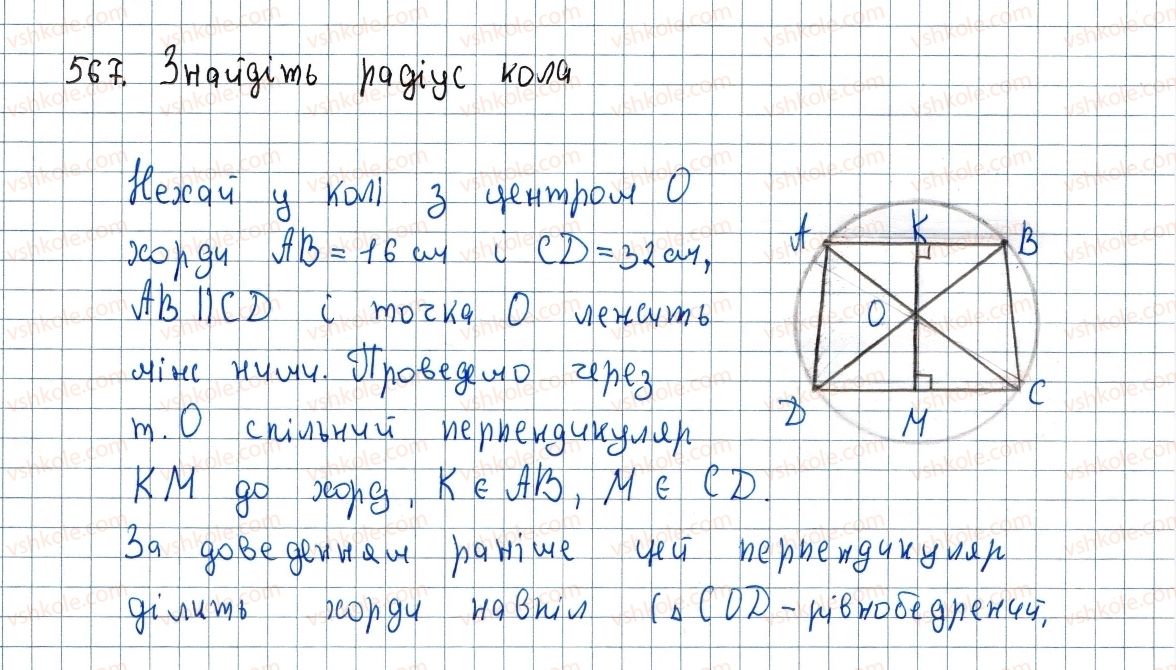 567. Знайдіть радіус кола
Нехай у колі з центром О
хорди AB = 16 см і CD = 32 см,
AB || CD і точка О лежить
між ними. Проведемо через
т. О спільний перпендикуляр
KM до хорд, K є AB, M є CD.
За доведенням раніше цей перпендикуляр
ділить хорди навпіл (△COD - рівнобедрений,
A
K
B
O
D
M
C
vshkole.com